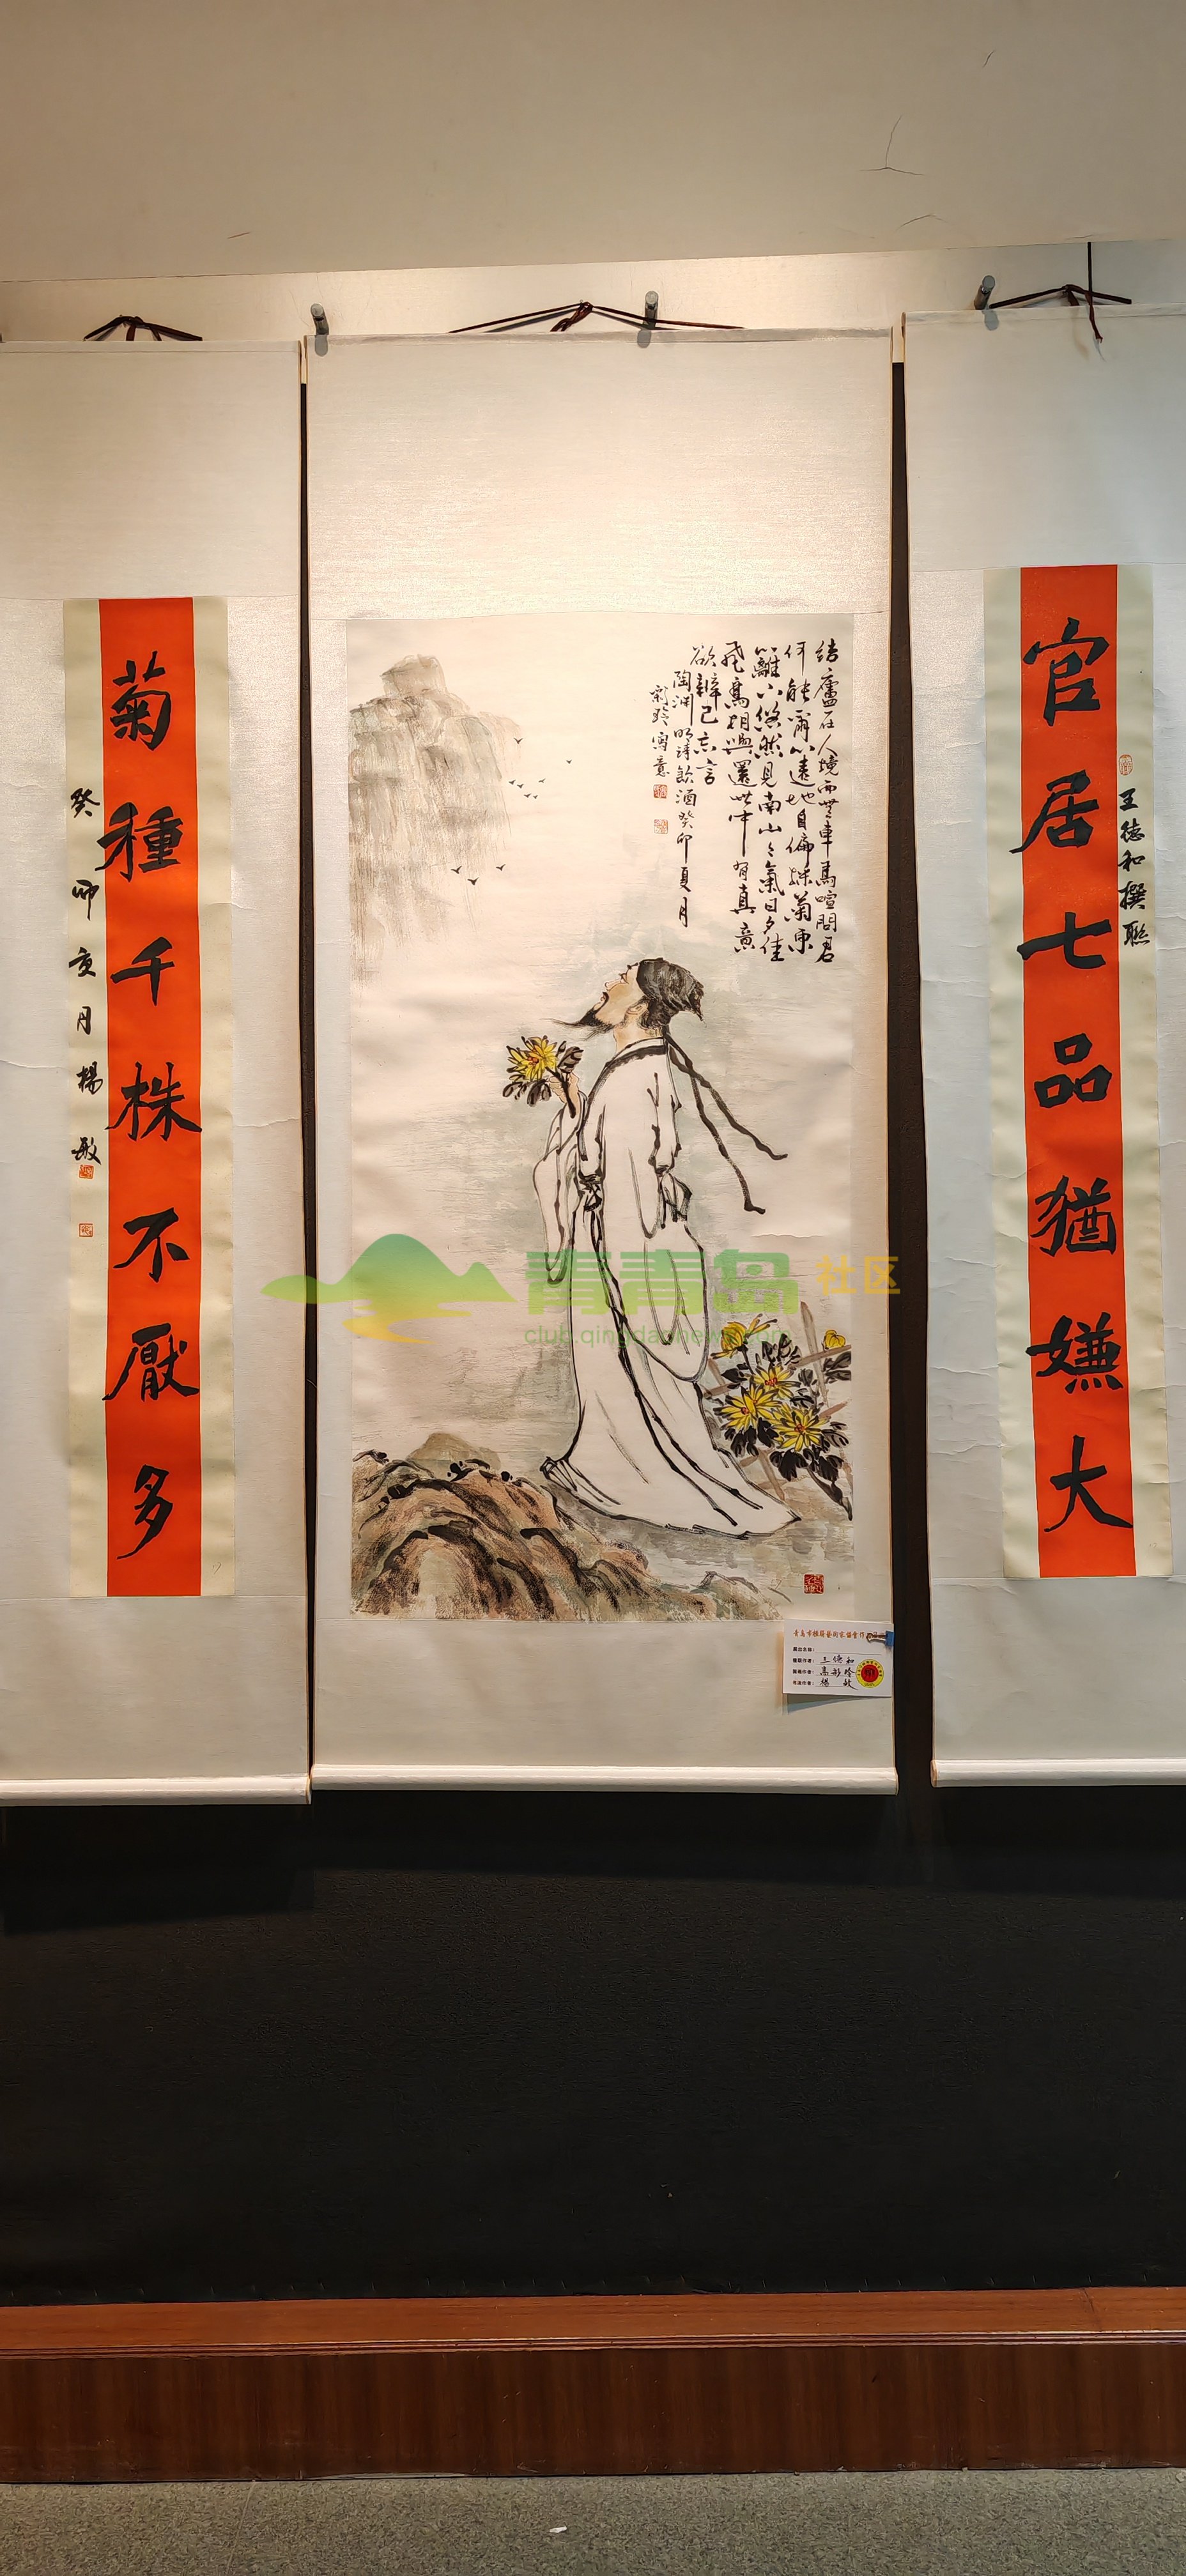 官居七品猶嫌大
王德和撰聯
結廬在人境而無車馬喧問君
何能爾心遠地自偏採菊東
籬下悠然見南山山氣日夕佳
飛鳥相與還此中有真意
欲辯已忘言
陶渊明詩飲酒癸卯夏月
彩玲寫意
菊種千株不厭多
癸卯亥月楊敏
青青岛社区
club.qingdaonews.com
青島市楹聯藝術家協會作品
王德和
高彩玲
楊敏